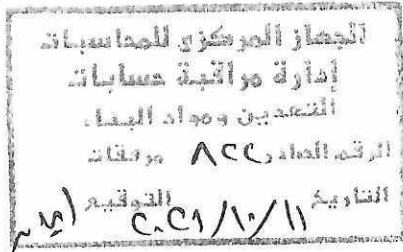 الجهاز المركزى للمحاسبات
إدارة مراقبة حسابات
التعدين ومواد البناء
الرقم الصادر ٨٢٢ مرفقات
التاريخ ٢٠٢١/١٠/١١ التوقيع